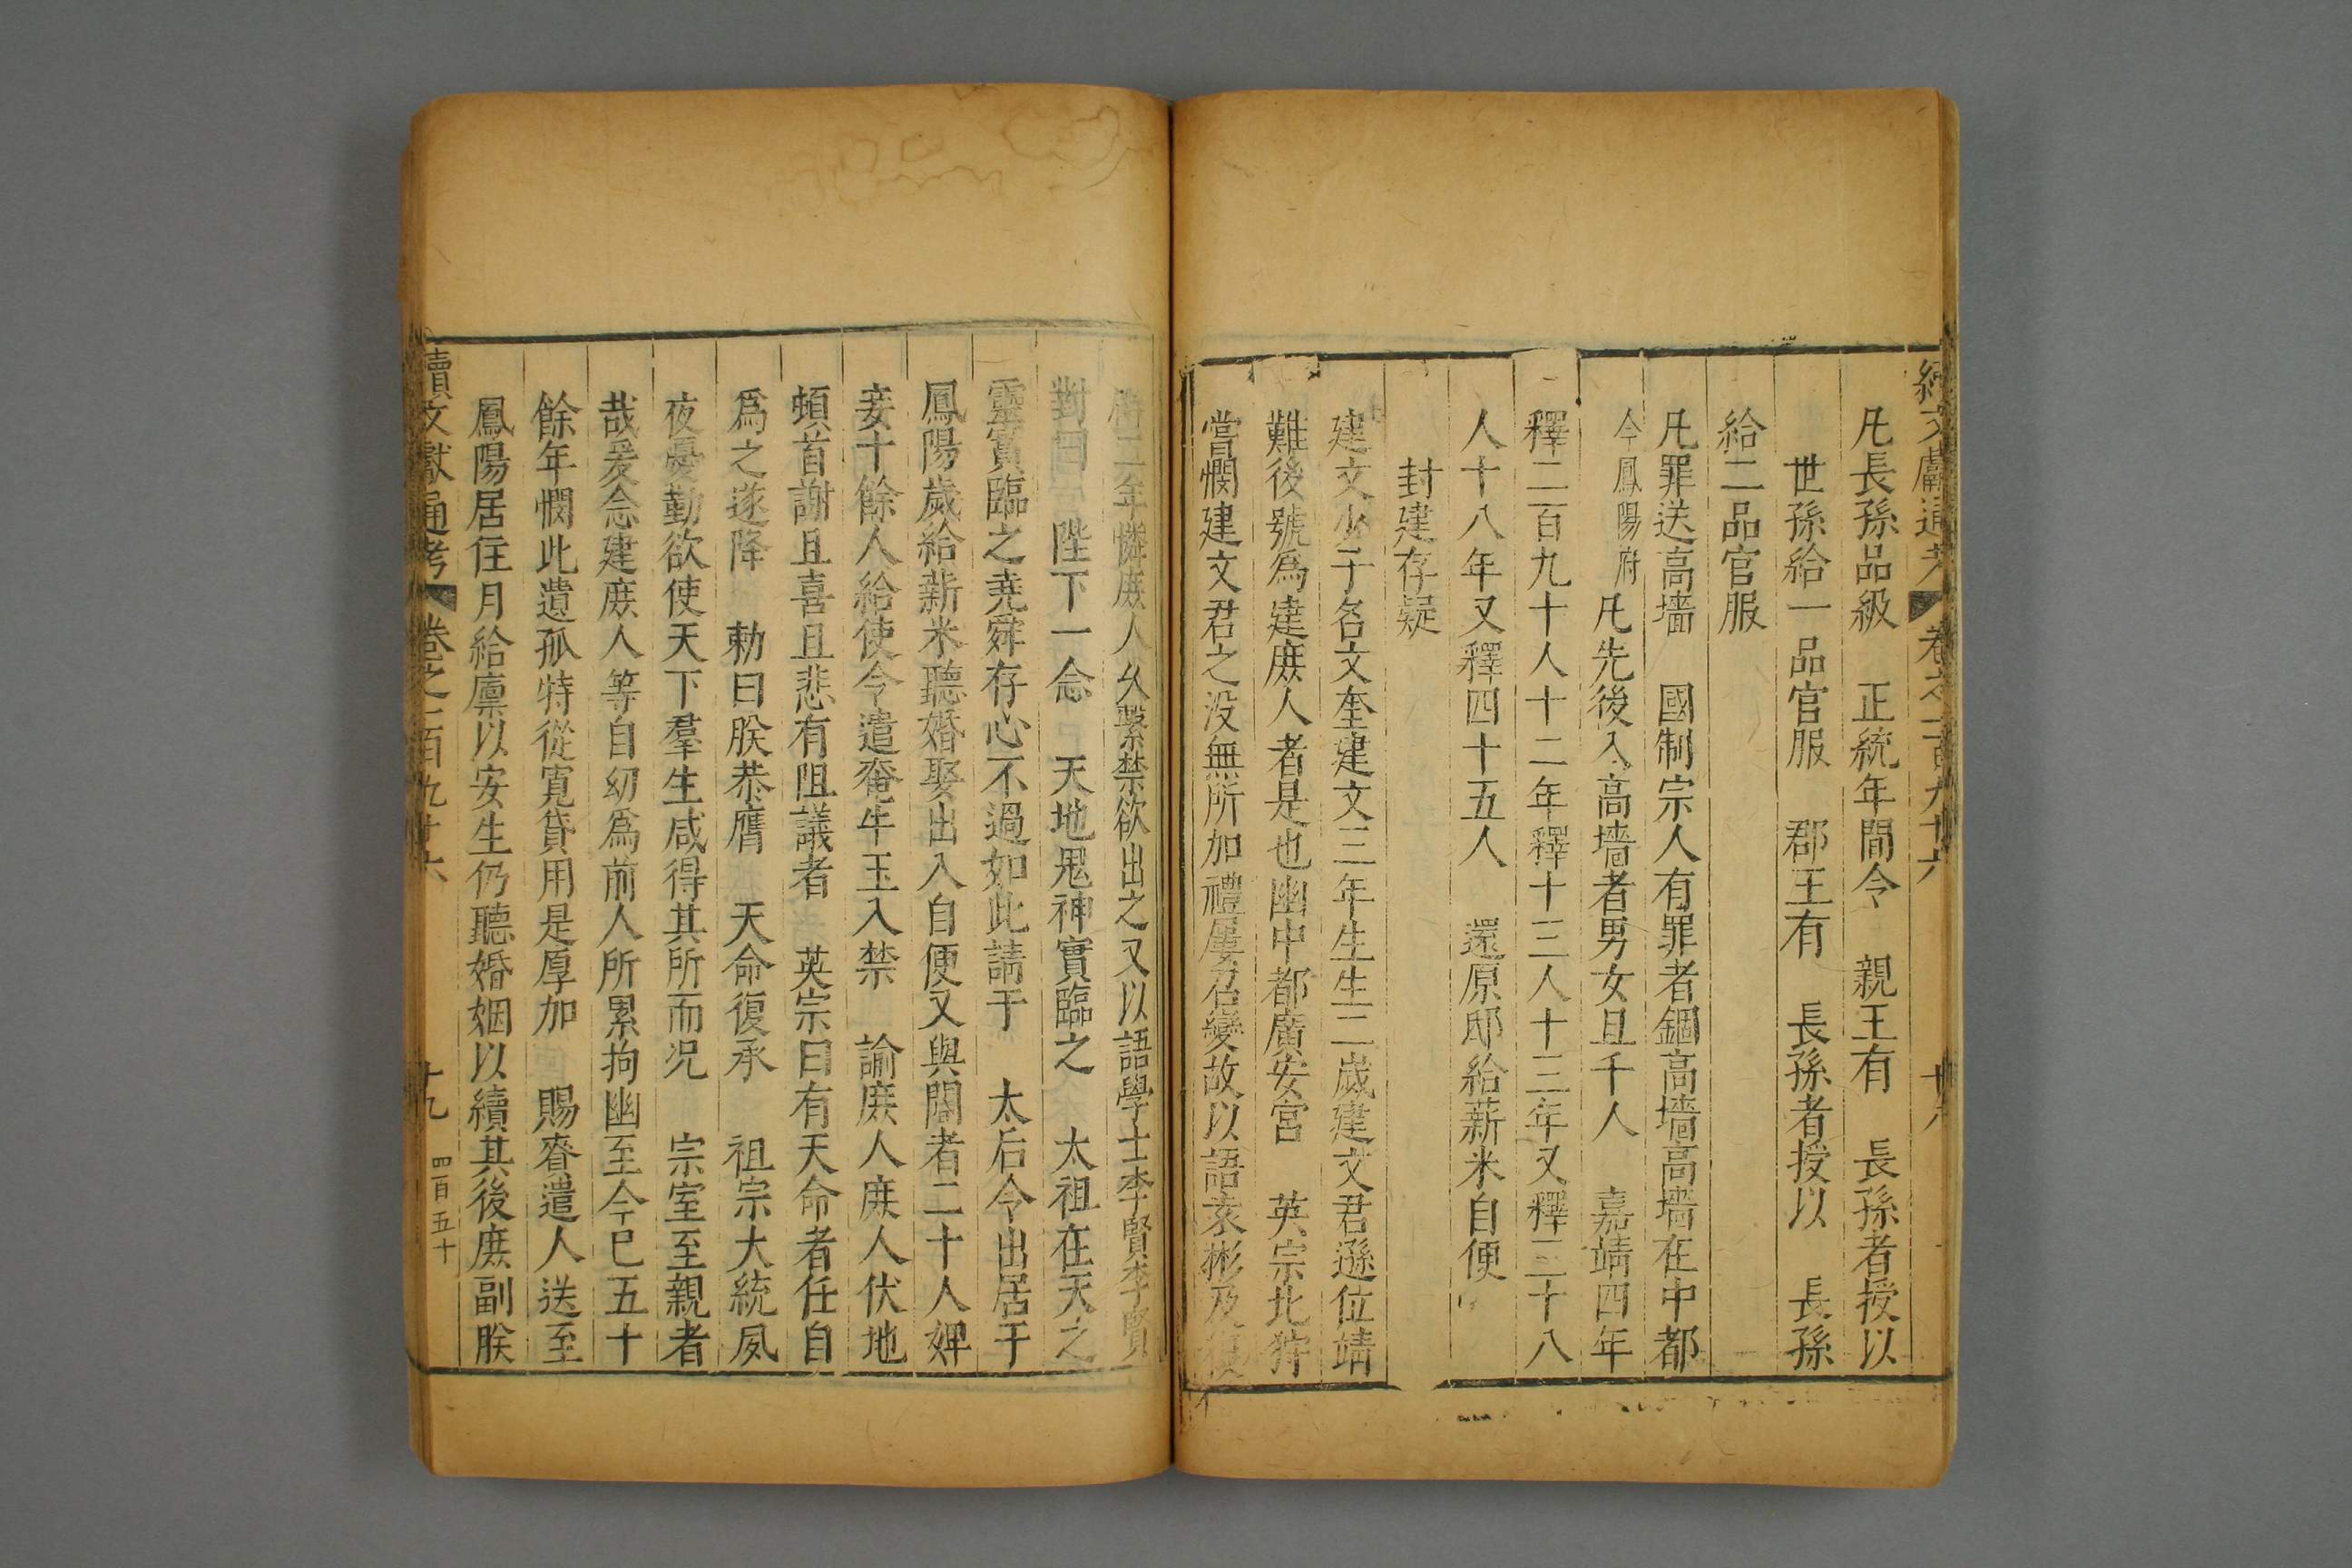 續文獻通考 卷之一百九十六
凡長孫品級 正統年間令 親王有 長孫者授以
世孫給一品官服 郡王有 長孫者授以 長孫
給二品官服
凡罪送高墻 國制宗人有罪者錮高墻高墻在中都
今鳳陽府 凡先後入高墻者男女且千人 嘉靖四年
釋二百九十人十二年釋十三人十三年又釋三十八
人十八年又釋四十五人 還原邸給薪米自便
封建存疑
建文少子名文奎建文三年生生二歲建文君遜位靖
難後號為建庶人者是也幽中都廣安宮 英宗北狩
嘗憫建文君之没無所加禮屢召變故以語袁彬及復
二年憐庶人久繫禁欲出之又以語學士李賢李賢
對曰 陛下一念 天地鬼神實臨之 太祖在天之
靈實臨之堯舜存心不過如此請于 太后令出居于
鳳陽歲給薪米聽婚娶出入自便又與閽者二十人婢
妾十餘人給使令遣奄牛玉入禁 諭庶人庶人伏地
頓首謝且喜且悲有阻議者 英宗曰有天命者任自
爲之遂降 勅曰朕恭膺 天命復承 祖宗大統夙
夜憂勤欲使天下羣生咸得其所而况 宗室至親者
哉爰念建庶人等自幼爲前人所累拘幽至今巳五十
餘年憫此遺孤特從寛貸用是厚加 賜賚遣人送至
鳳陽居住月給廪以安生仍聽婚姻以續其後庶副朕
續文獻通考 卷之一百九十六 十九 四百五十